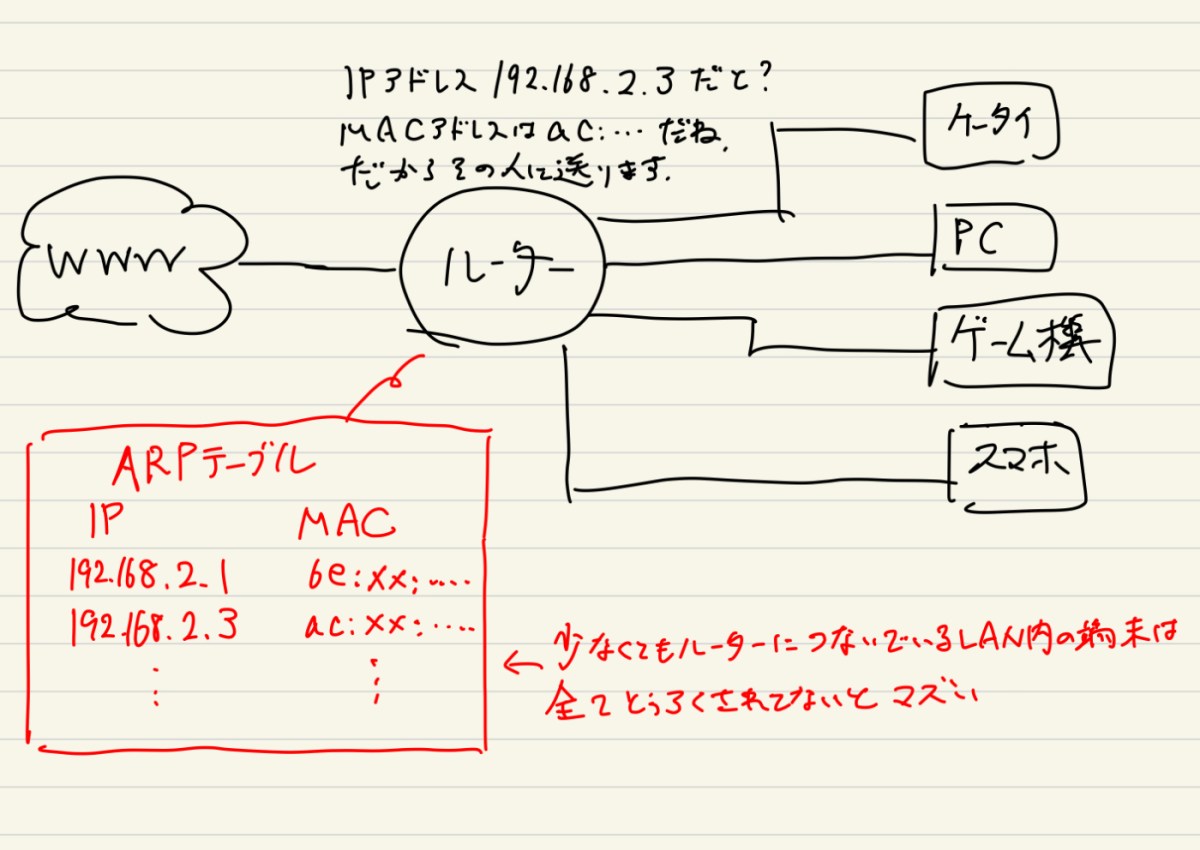 IPアドレス 192.168.2.3 だと?
MACアドレスは ac:… だね.
だからその人に送ります.
WWW
ルーター
ケータイ
PC
ゲーム機
スマホ
ARPテーブル
IP MAC
192.168.2.1 be:xx:....
192.168.2.3 ac:xx:....
⋮ ⋮
← 少なくてもルーターにつないでいるLAN内の端末は
全てとうろくされてないとマズい